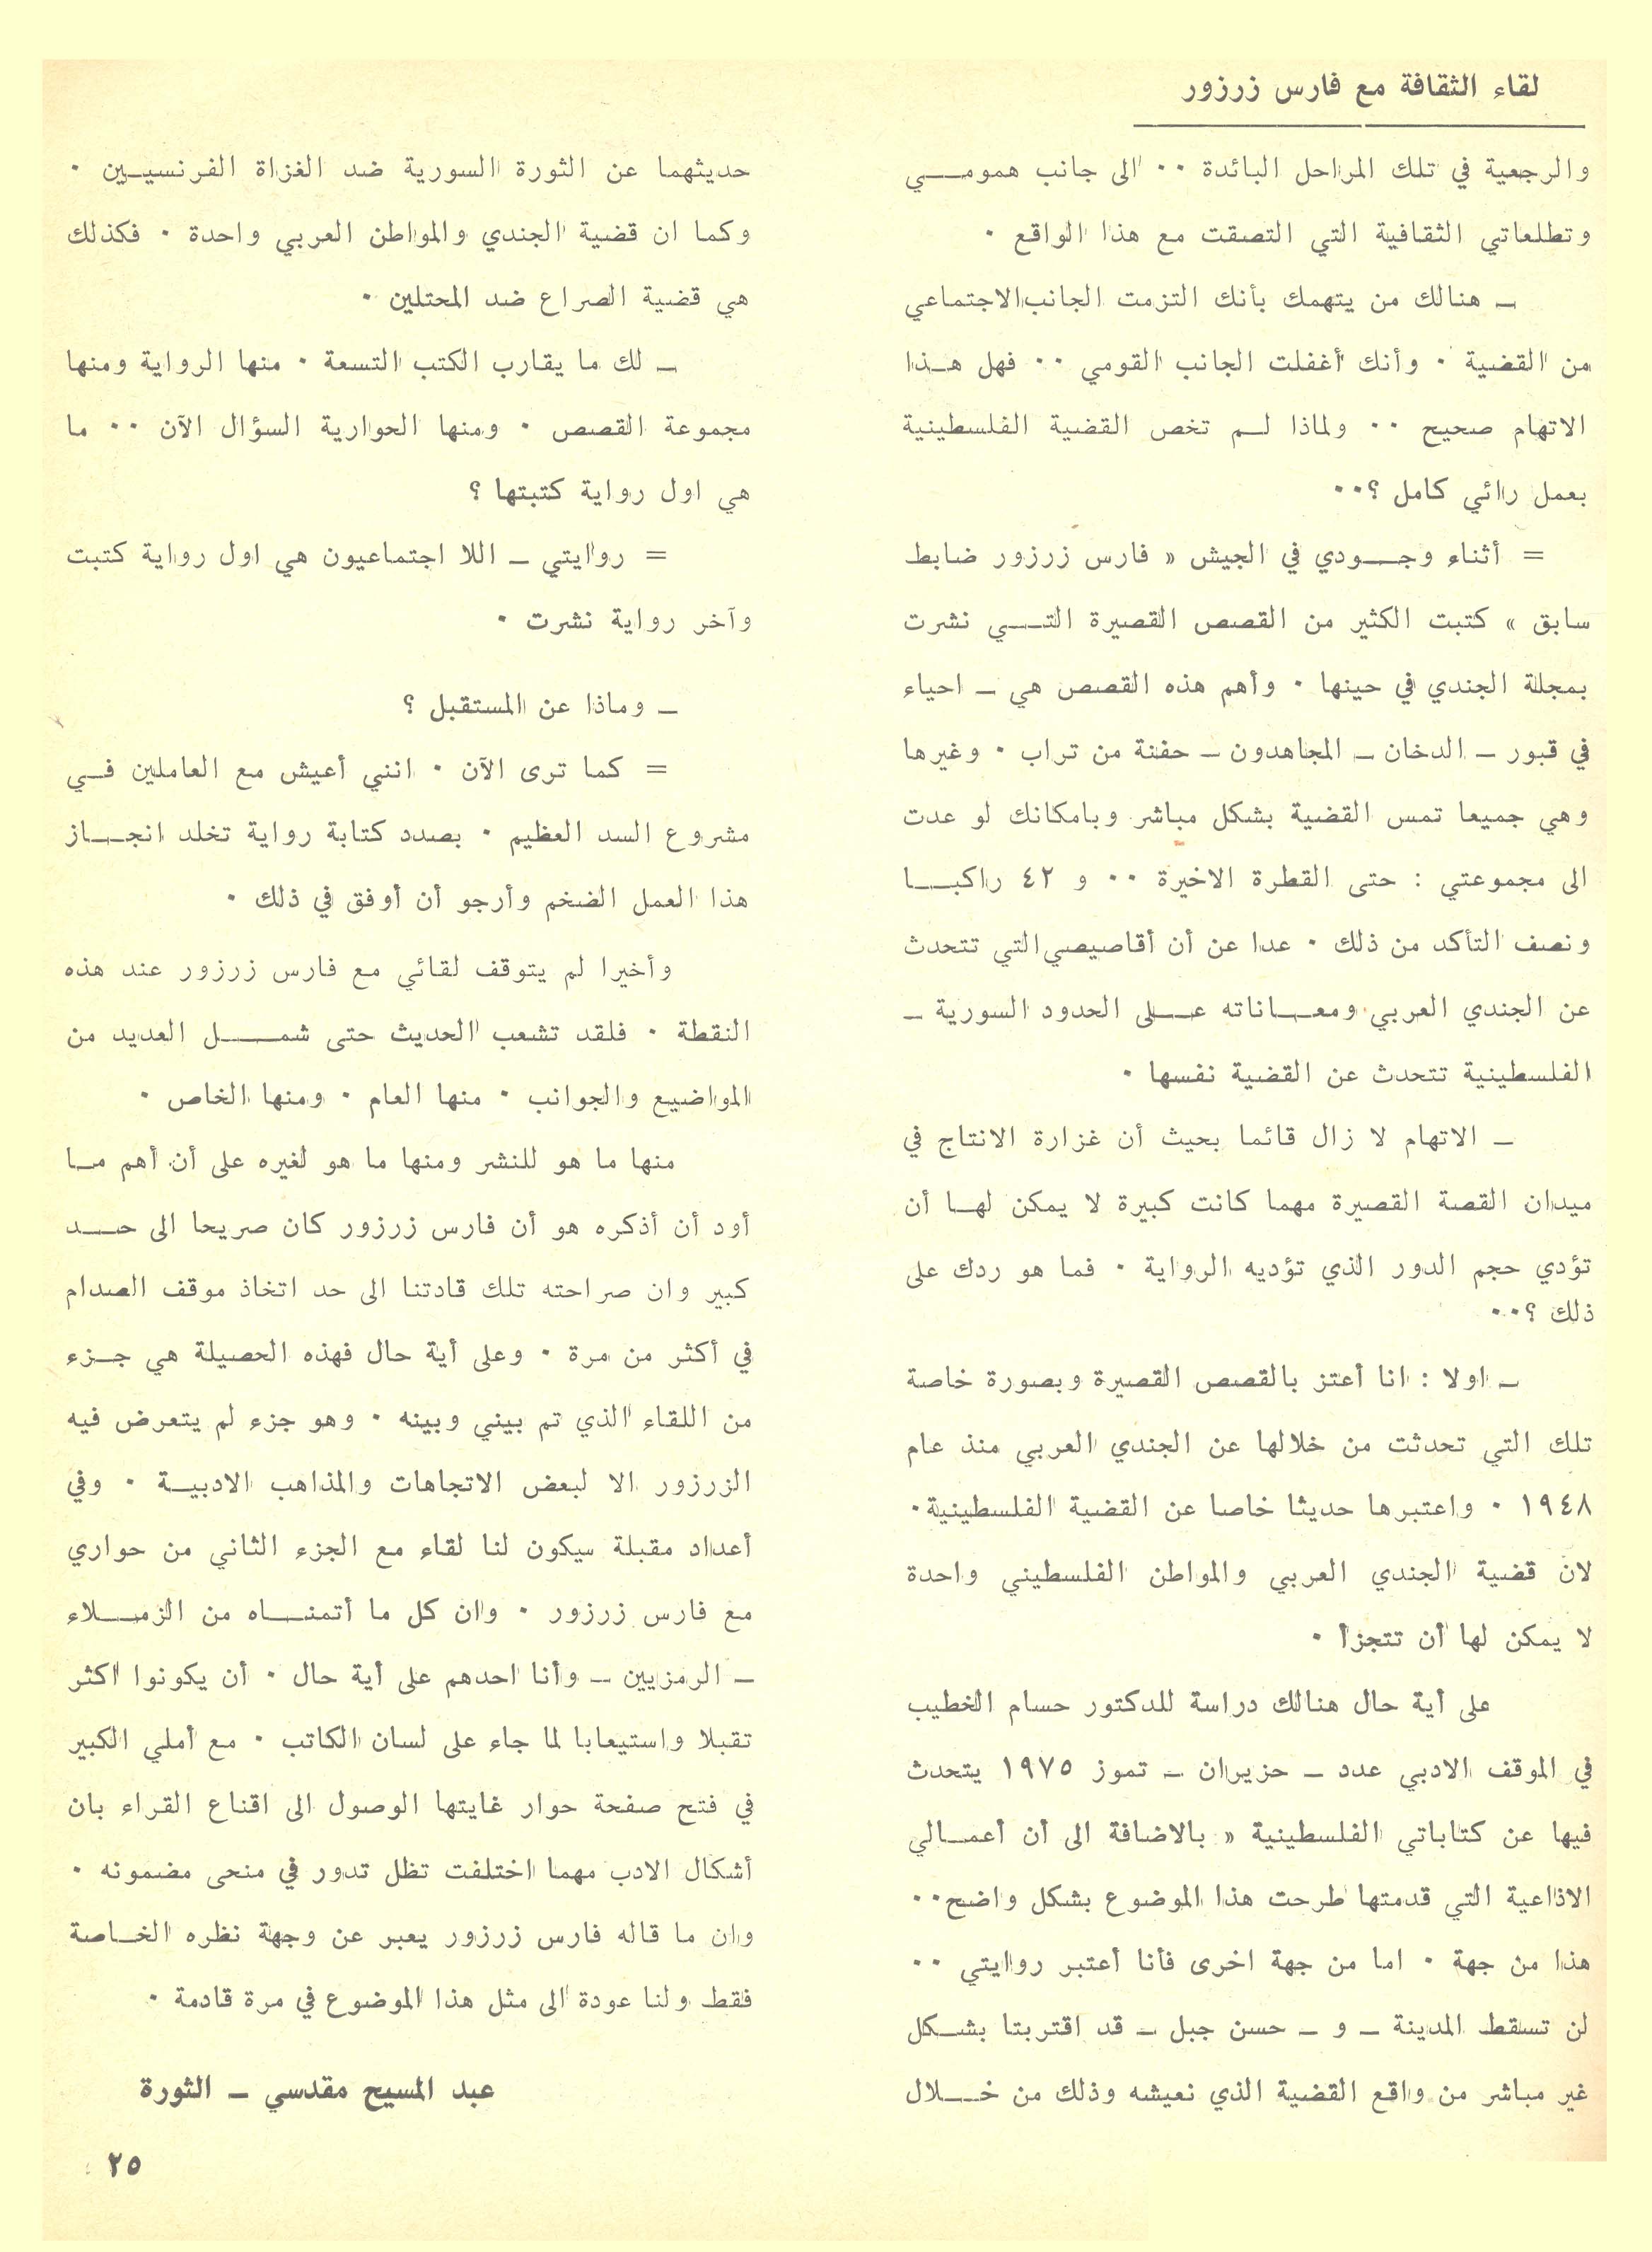 لقاء الثقافة مع فارس زرزور
والرجعية في تلك المراحل البائدة ٠٠ الى جانب همومي
وتطلعاتي الثقافية التي التصقت مع هذا الواقع ٠
ــ هنالك من يتهمك بأنك التزمت الجانب الاجتماعي
من القضية ٠ وأنك أغفلت الجانب القومي ٠٠ فهل هذا
الاتهام صحيح ٠٠ ولماذا لم تخص القضية الفلسطينية
بعمل رائي كامل ؟٠٠
= أثناء وجودي في الجيش « فارس زرزور ضابط
سابق » كتبت الكثير من القصص القصيرة التي نشرت
بمجلة الجندي في حينها ٠ وأهم هذه القصص هي ــ احياء
في قبور ــ الدخان ــ المجاهدون ــ حفنة من تراب ٠ وغيرها
وهي جميعا تمس القضية بشكل مباشر وبامكانك لو عدت
الى مجموعتي : حتى القطرة الاخيرة ٠٠ و ٤٢ راكبا
ونصف التأكد من ذلك ٠ عدا عن أن أقاصيصي التي تتحدث
عن الجندي العربي ومعاناته على الحدود السورية ــ
الفلسطينية تتحدث عن القضية نفسها ٠
ــ الاتهام لا زال قائما بحيث أن غزارة الانتاج في
ميدان القصة القصيرة مهما كانت كبيرة لا يمكن لها أن
تؤدي حجم الدور الذي تؤديه الرواية ٠ فما هو ردك على
ذلك ؟٠٠
ــ اولا : انا أعتز بالقصص القصيرة وبصورة خاصة
تلك التي تحدثت من خلالها عن الجندي العربي منذ عام
١٩٤٨ ٠ واعتبرها حديثا خاصا عن القضية الفلسطينية٠
لان قضية الجندي العربي والمواطن الفلسطيني واحدة
لا يمكن لها أن تتجزأ ٠
على أية حال هنالك دراسة للدكتور حسام الخطيب
في الموقف الادبي عدد ــ حزيران ــ تموز ١٩٧٥ يتحدث
فيها عن كتاباتي الفلسطينية « بالاضافة الى أن أعمالي
الاذاعية التي قدمتها طرحت هذا الموضوع بشكل واضح٠٠
هذا من جهة ٠ اما من جهة اخرى فأنا أعتبر روايتي ٠٠
لن تسقط المدينة ــ و ــ حسن جبل ــ قد اقتربتا بشكل
غير مباشر من واقع القضية الذي نعيشه وذلك من خلال
حديثهما عن الثورة السورية ضد الغزاة الفرنسيين ٠
وكما ان قضية الجندي والمواطن العربي واحدة ٠ فكذلك
هي قضية الصراع ضد المحتلين ٠
ــ لك ما يقارب الكتب التسعة ٠ منها الرواية ومنها
مجموعة القصص ٠ ومنها الحوارية السؤال الآن ٠٠ ما
هي اول رواية كتبتها ؟
= روايتي ــ اللا اجتماعيون هي اول رواية كتبت
وآخر رواية نشرت ٠
ــ وماذا عن المستقبل ؟
= كما ترى الآن ٠ انني أعيش مع العاملين في
مشروع السد العظيم ٠ بصدد كتابة رواية تخلد انجاز
هذا العمل الضخم وأرجو أن أوفق في ذلك ٠
وأخيرا لم يتوقف لقائي مع فارس زرزور عند هذه
النقطة ٠ فلقد تشعب الحديث حتى شمل العديد من
المواضيع والجوانب ٠ منها العام ٠ ومنها الخاص ٠
منها ما هو للنشر ومنها ما هو لغيره على أن أهم ما
أود أن أذكره هو أن فارس زرزور كان صريحا الى حد
كبير وان صراحته تلك قادتنا الى حد اتخاذ موقف الصدام
في أكثر من مرة ٠ وعلى أية حال فهذه الحصيلة هي جزء
من اللقاء الذي تم بيني وبينه ٠ وهو جزء لم يتعرض فيه
الزرزور الا لبعض الاتجاهات والمذاهب الادبية ٠ وفي
أعداد مقبلة سيكون لنا لقاء مع الجزء الثاني من حواري
مع فارس زرزور ٠ وان كل ما أتمناه من الزملاء
ــ الرمزيين ــ وأنا احدهم على أية حال ٠ أن يكونوا اكثر
تقبلا واستيعابا لما جاء على لسان الكاتب ٠ مع أملي الكبير
في فتح صفحة حوار غايتها الوصول الى اقناع القراء بان
أشكال الادب مهما اختلفت تظل تدور في منحى مضمونه ٠
وان ما قاله فارس زرزور يعبر عن وجهة نظره الخاصة
فقط ولنا عودة الى مثل هذا الموضوع في مرة قادمة ٠
عبد المسيح مقدسي ــ الثورة
٢٥